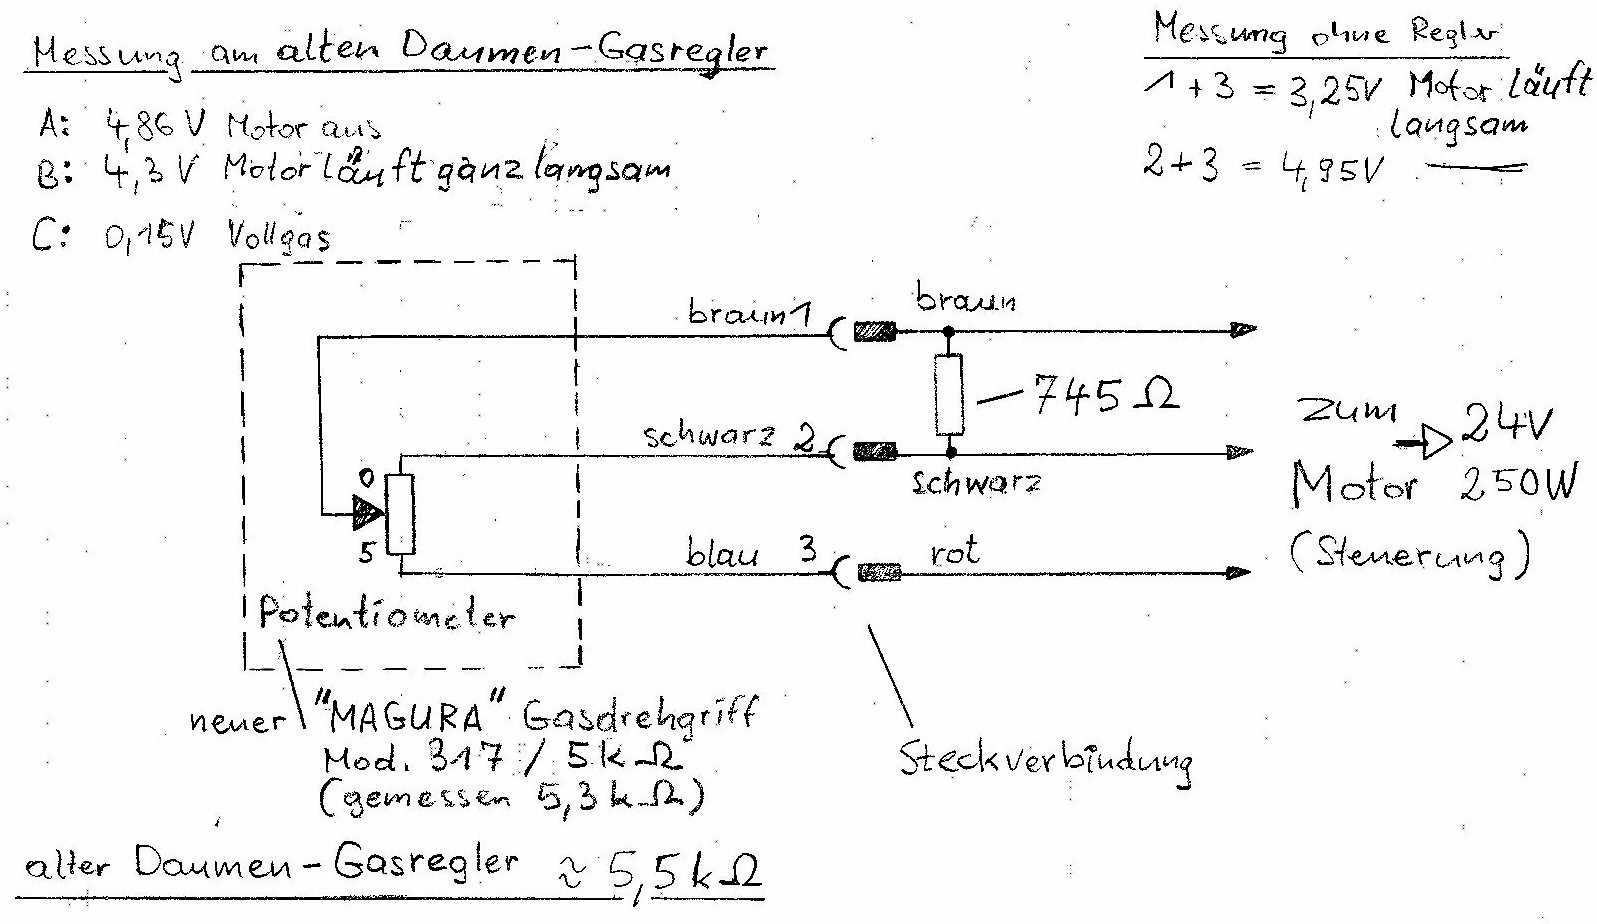 Messung am alten Daumen-Gasregler
A: 4,86 V Motor aus
B: 4,3 V Motor läuft ganz langsam
C: 0,15V Vollgas
Messung ohne Regler
1 + 3 = 3,25V Motor läuft
langsam
2 + 3 = 4,95V —
braun 1
braun
745 Ω
schwarz 2
schwarz
0
5
blau 3
rot
zum
Motor
(Steuerung)
24V
250W
Potentiometer
neuer "MAGURA" Gasdrehgriff
Mod. 317 / 5k Ω
(gemessen 5,3k Ω)
Steckverbindung
alter Daumen-Gasregler ≈ 5,5k Ω